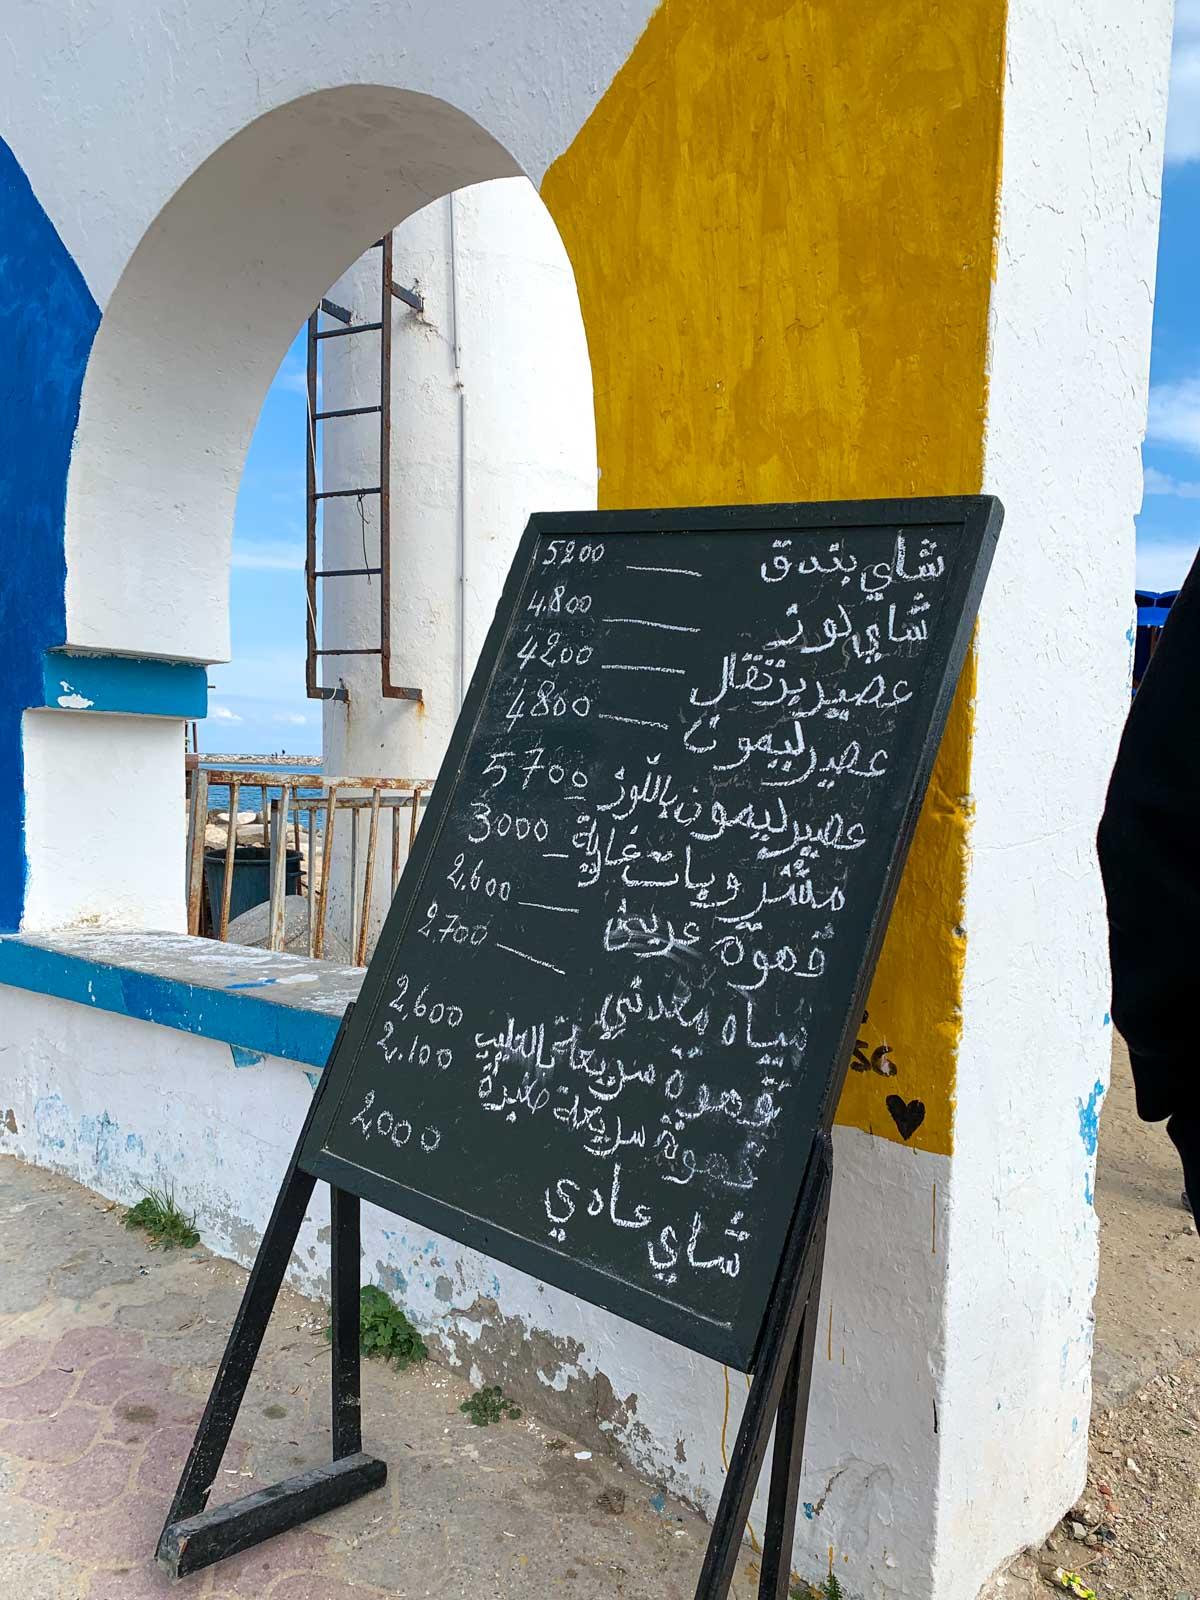 شاي بندق ____ 5.200
شاي لوز ____ 4.800
عصير برتقال ____ 4200
عصير ليمون ____ 4800
عصير ليمون باللوز 5700
مشروبات غازية _ 3000
قهوة عربي ____ 2.600
مياه معدني ____ 2.700
قهوة سريعة بالحليب 2,600
قهوة سريعة 2.100
شاي عادي 2,000
SG